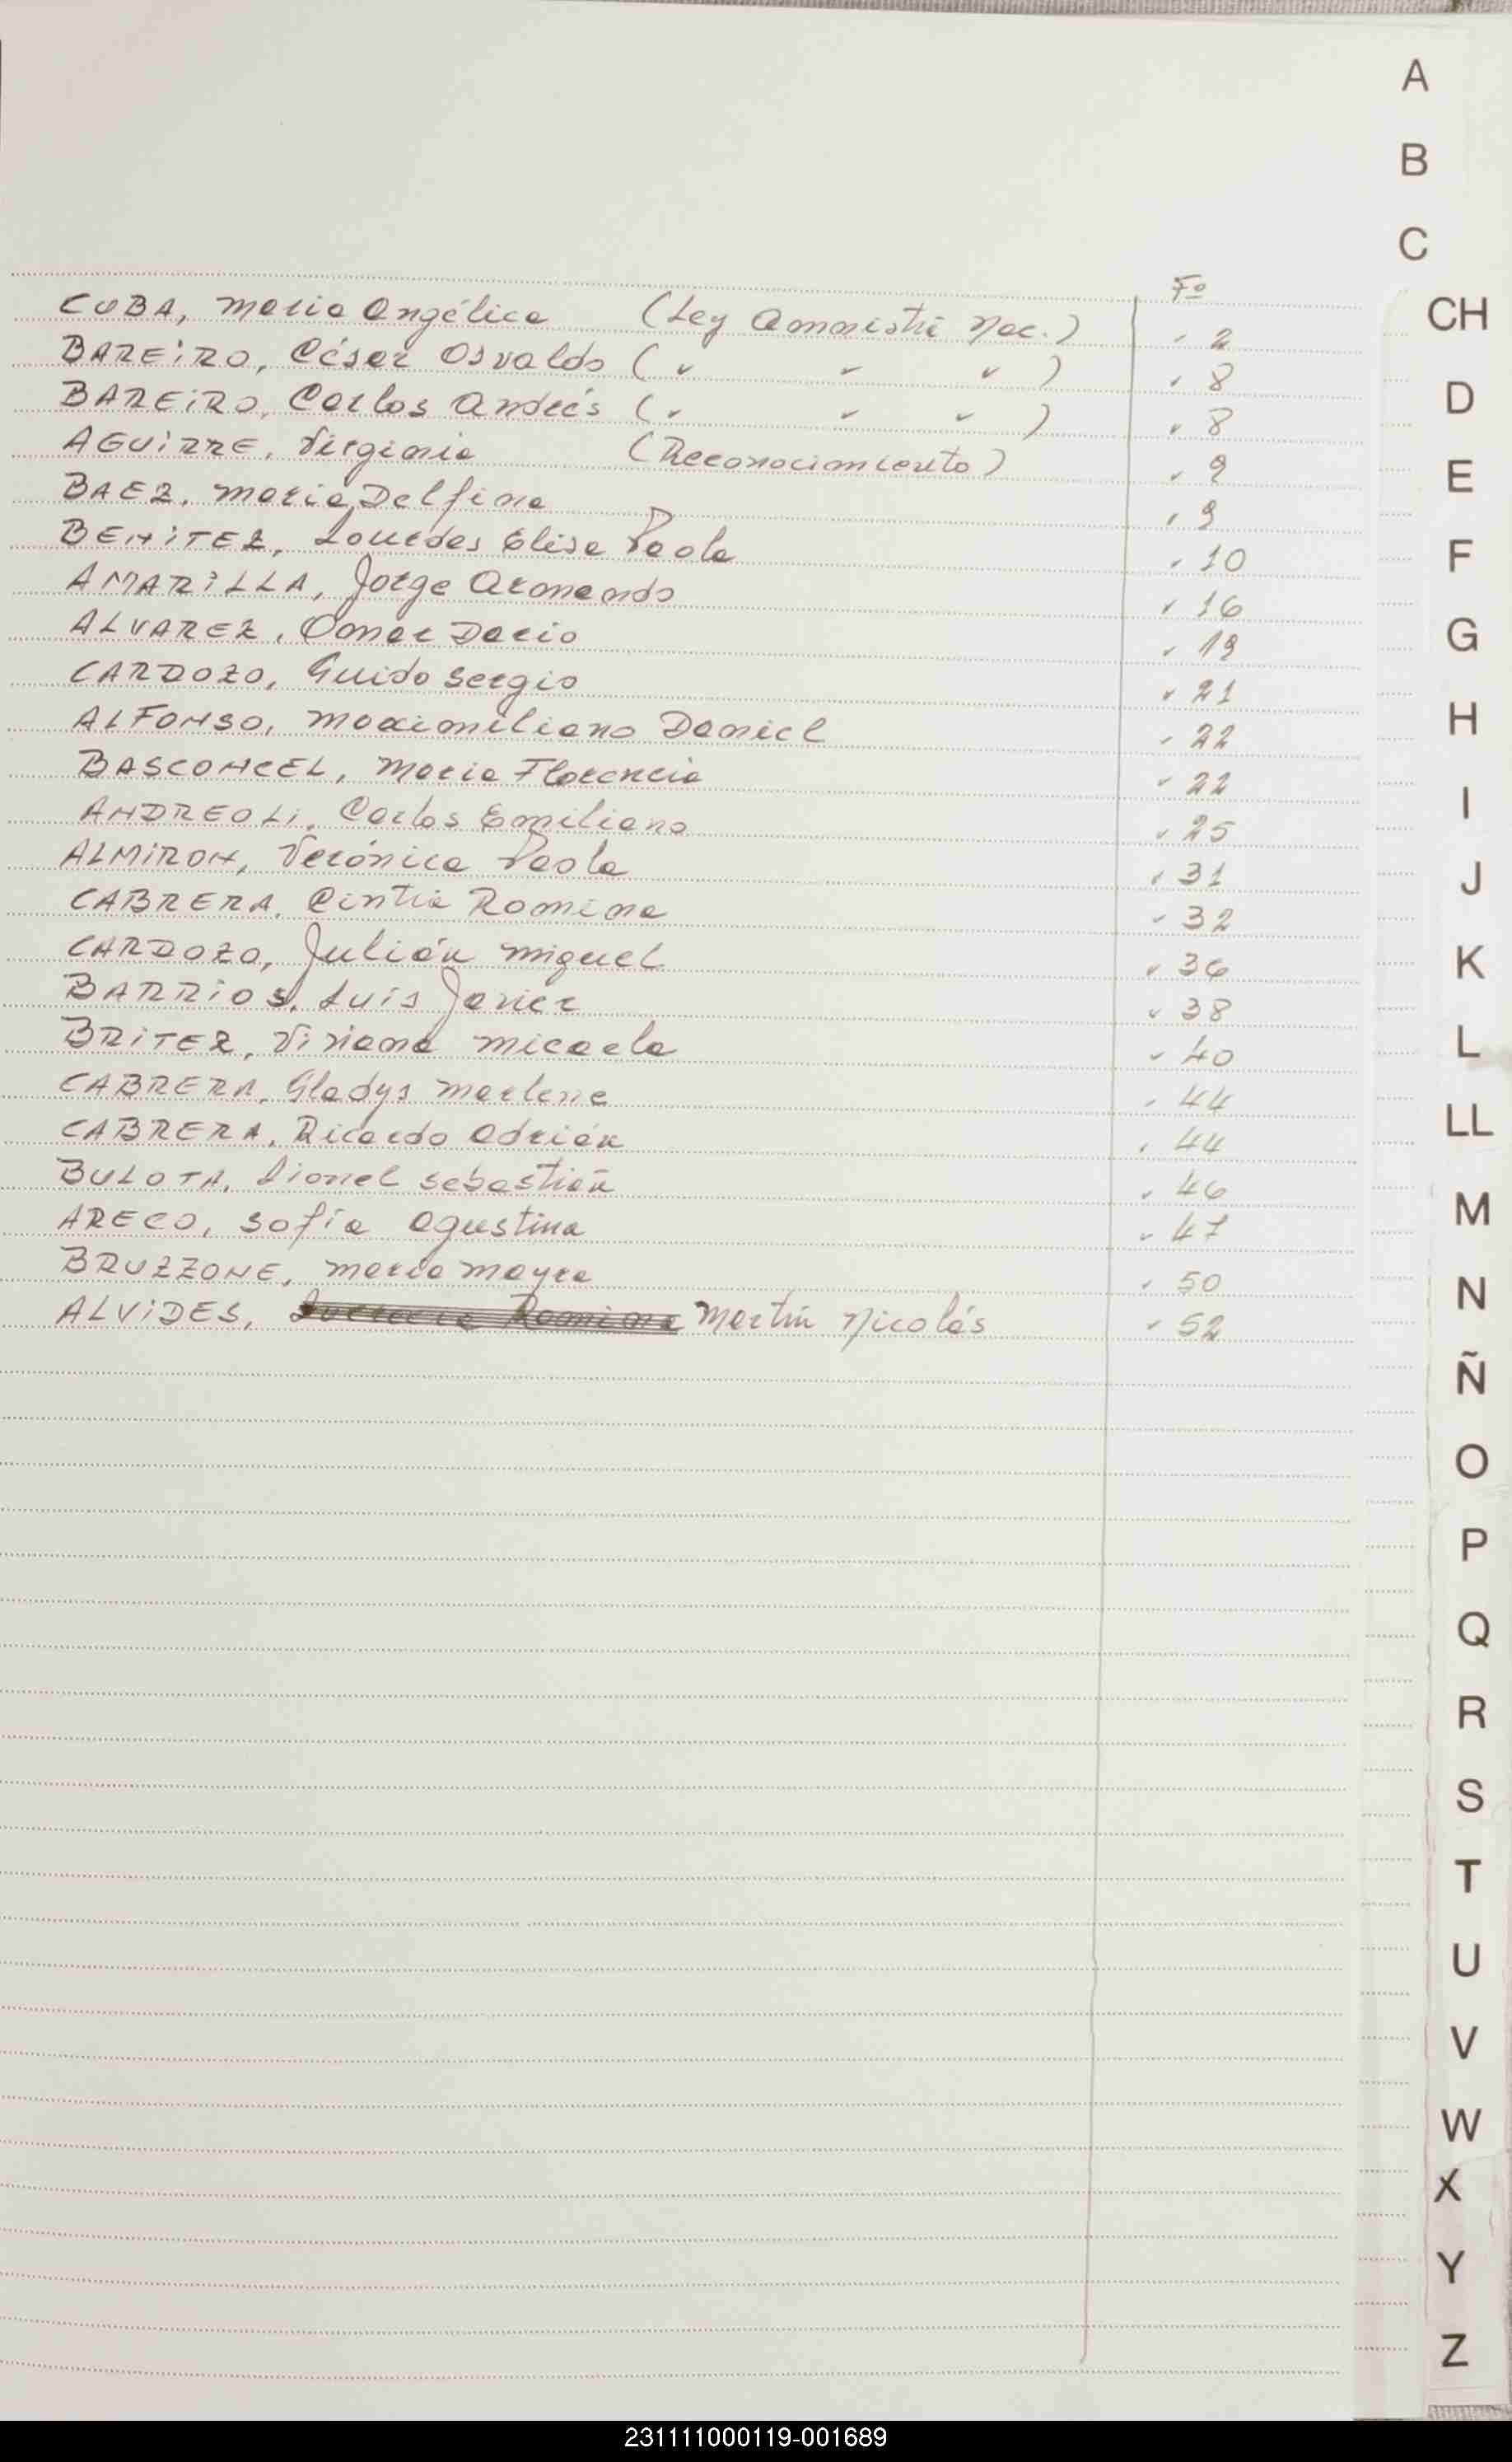 Fº
CUBA, Maria Angélica (Ley Amnistía Nac.) " 2
BAREIRO, César Osvaldo ( " " " ) " 8
BAREIRO, Carlos Andrés ( " " " ) " 8
AGUIRRE, Virginia (Reconocimiento) " 9
BAEZ, Maria Delfina " 9
BENITEZ, Lourdes Elisa Paola " 10
AMARILLA, Jorge Armando " 16
ALVAREZ, Omar Dario " 19
CARDOZO, Guido Sergio " 21
ALFONSO, Maximiliano Daniel " 22
BASCONCEL, Maria Florencia " 22
ANDREOLI, Carlos Emiliano " 25
ALMIRON, Verónica Paola " 31
CABRERA, Cintia Romina " 32
CARDOZO, Julián Miguel " 36
BARRIOS, Luis Javier " 38
BRITEZ, Viviana Micaela " 40
CABRERA, Gladys Marlene " 44
CABRERA, Ricardo Adrián " 44
BULOTA, Lionel Sebastián " 46
ARECO, Sofía Agustina " 47
BRUZZONE, Maria Mayra " 50
ALVIDES, Martín Nicolás " 52
A
B
C
CH
D
E
F
G
H
I
J
K
L
LL
M
N
Ñ
O
P
Q
R
S
T
U
V
W
X
Y
Z
231111000119-001689